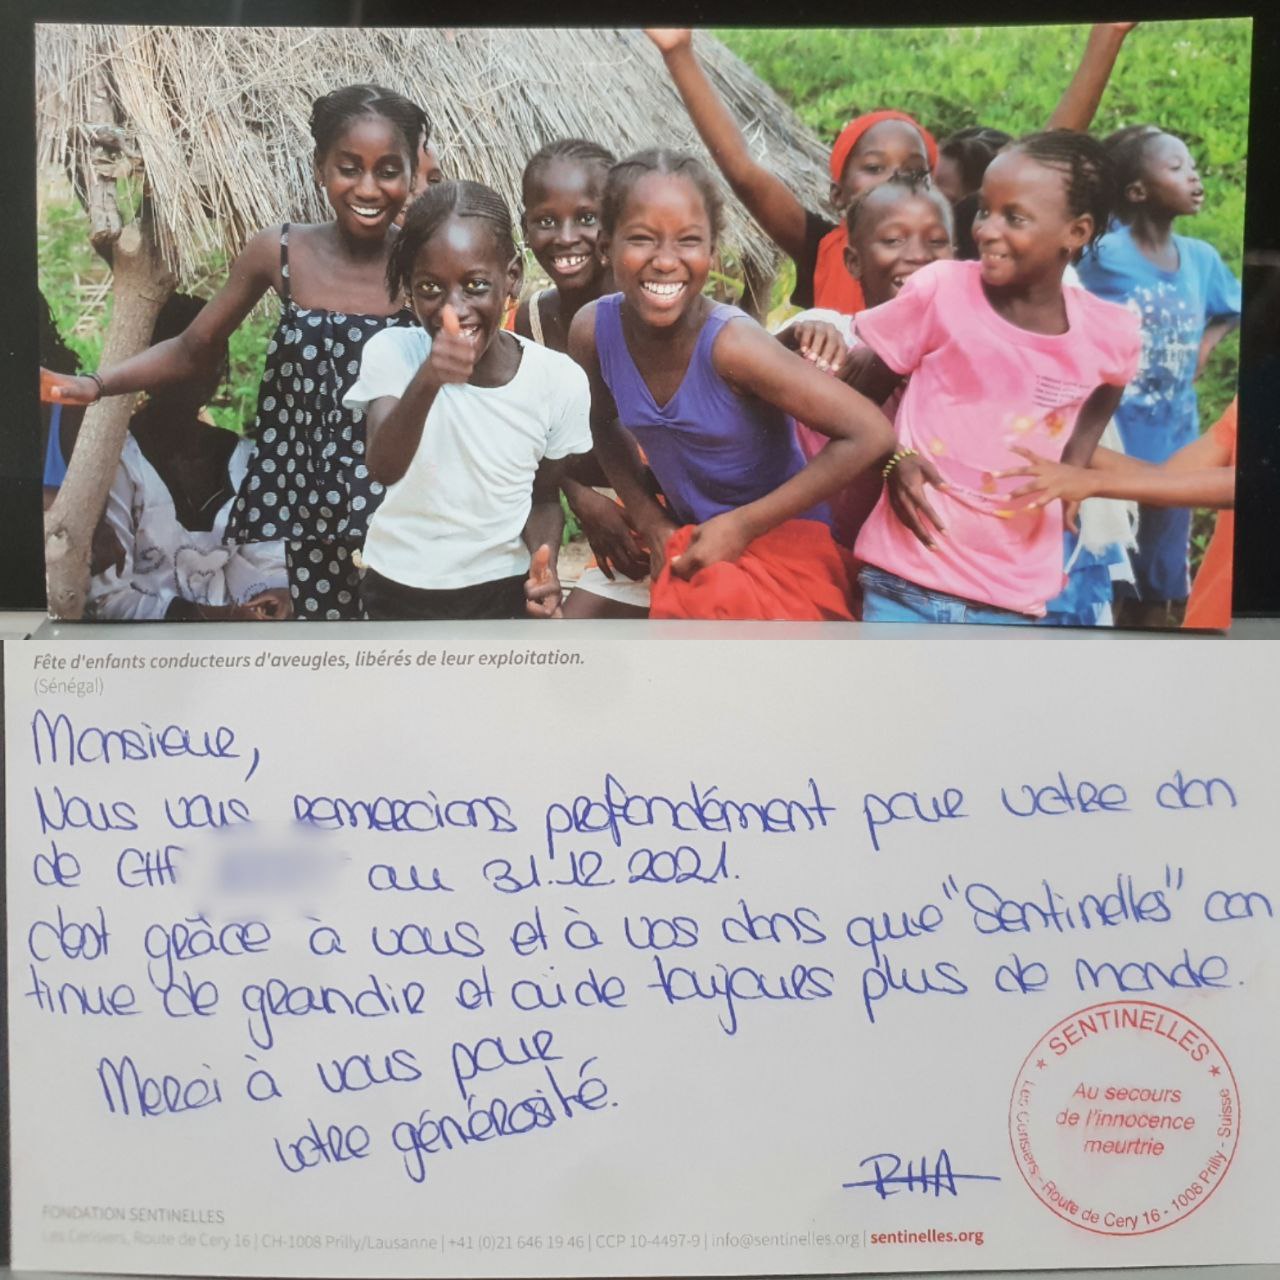 Fête d'enfants conducteurs d'aveugles, libérés de leur exploitation.
(Sénégal)
Monsieur,
Nous vous remercions profondément pour votre don
de CHF au 31.12.2021.
c'est grâce à vous et à vos dons que "Sentinelles" con
tinue de grandir et aide toujours plus de monde.
Merci à vous pour
votre générosité.
RHA
SENTINELLES
Au secours
de l'innocence
meurtrie
Les Cerisiers - Route de Cery 16 - 1008 Prilly - Suisse
FONDATION SENTINELLES
Les Cerisiers, Route de Cery 16 | CH-1008 Prilly/Lausanne | +41 (0)21 646 19 46 | CCP 10-4497-9 | info@sentinelles.org | sentinelles.org